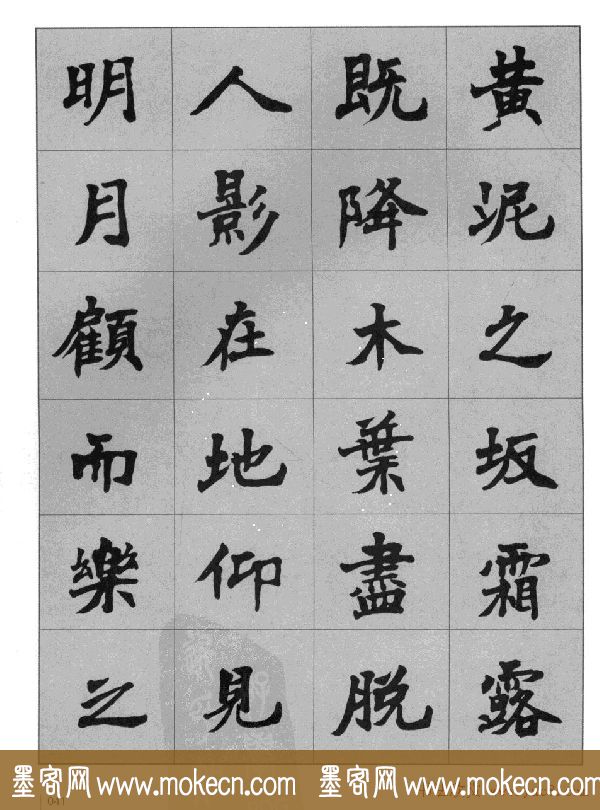 黄泥之坂霜露
既降木葉盡脱
人影在地仰見
明月顧而樂之
墨客网 www.mokecn.com 墨客网 www.mokecn.com
041